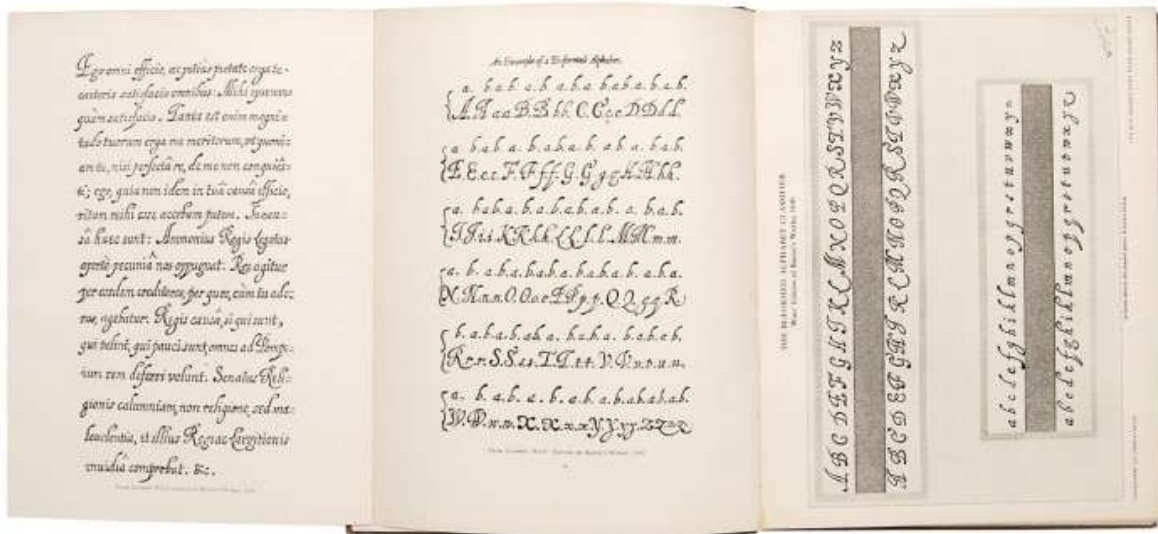 Ego omni officio, ac potius pietate erga te-
caeteris satisfacio omnibus: Mihi ipse nun-
quàm satisfacio. Tanta est enim magni-
tudo tuorum erga me meritorum, ut quoni-
am tu, nisi perfectâ re, de me non conquiês-
ti; ego, quia non idem in tuâ causâ efficio,
vitam mihi esse acerbam putem. In cau-
sâ haec sunt: Ammonius Regis Legatus
apertè pecuniâ nos oppugnat. Res agitur
per eosdem creditores, per quos, cùm tu ade-
ras, agebatur. Regis causâ, si qui sunt,
qui velint, qui pauci sunt, omnes ad Pompe-
ium rem deferri volunt. Senatus Reli-
gionis calumniam, non religione, sed ma-
levolentia, et illius Regiae Largitionis
invidiâ comprobat. &c.
An Example of a Bi-formed Alphabet.
a. b.a.b. a. b.a. b.a. b.a.b.a. b.a.b.
A.A.a.a.B.B.b.b. C.C.c.c.D.D.d.d.
a. b.a.b. a. b.a.b.a.b.a.b. a. b.a.b.
E.E.e.e.F.F.f.f.G.G.g.g.H.H.h.h.
a. b.a.b.a. b.a.b.a.b.a.b. a. b.a.b.
I.I.i.i.K.K.k.k.L.L.l.l.M.M.m.m.
a. b. a.b.a. b.a.b.a.b.a.b.a.b. a.b.a.
N.N.n.n.O.O.o.o.P.P.p.p.Q.Q.q.q.R.
b. a.b.a.b.a.b.a. b.a.b.a. b.a.b.a.b.
R.r.r.S.S.s.s.T.T.t.t.V.V.v.v.u.u.
a. b.a.b. a. b. a.b. a.b. a.b.a.b.a.b.
W.W.w.w.X.X.x.x.Y.Y.y.y.Z.Z.z.z.
THE BI-FORMED ALPHABET CLASSIFIER
A B C D E F G H I K L M N O P Q R S T V W X Y Z
A B C D E F G H I K L M N O P Q R S T V W X Y Z
a b c d e f g h i k l m n o p q r s t u v w x y z
a b c d e f g h i k l m n o p q r s t u v w x y z